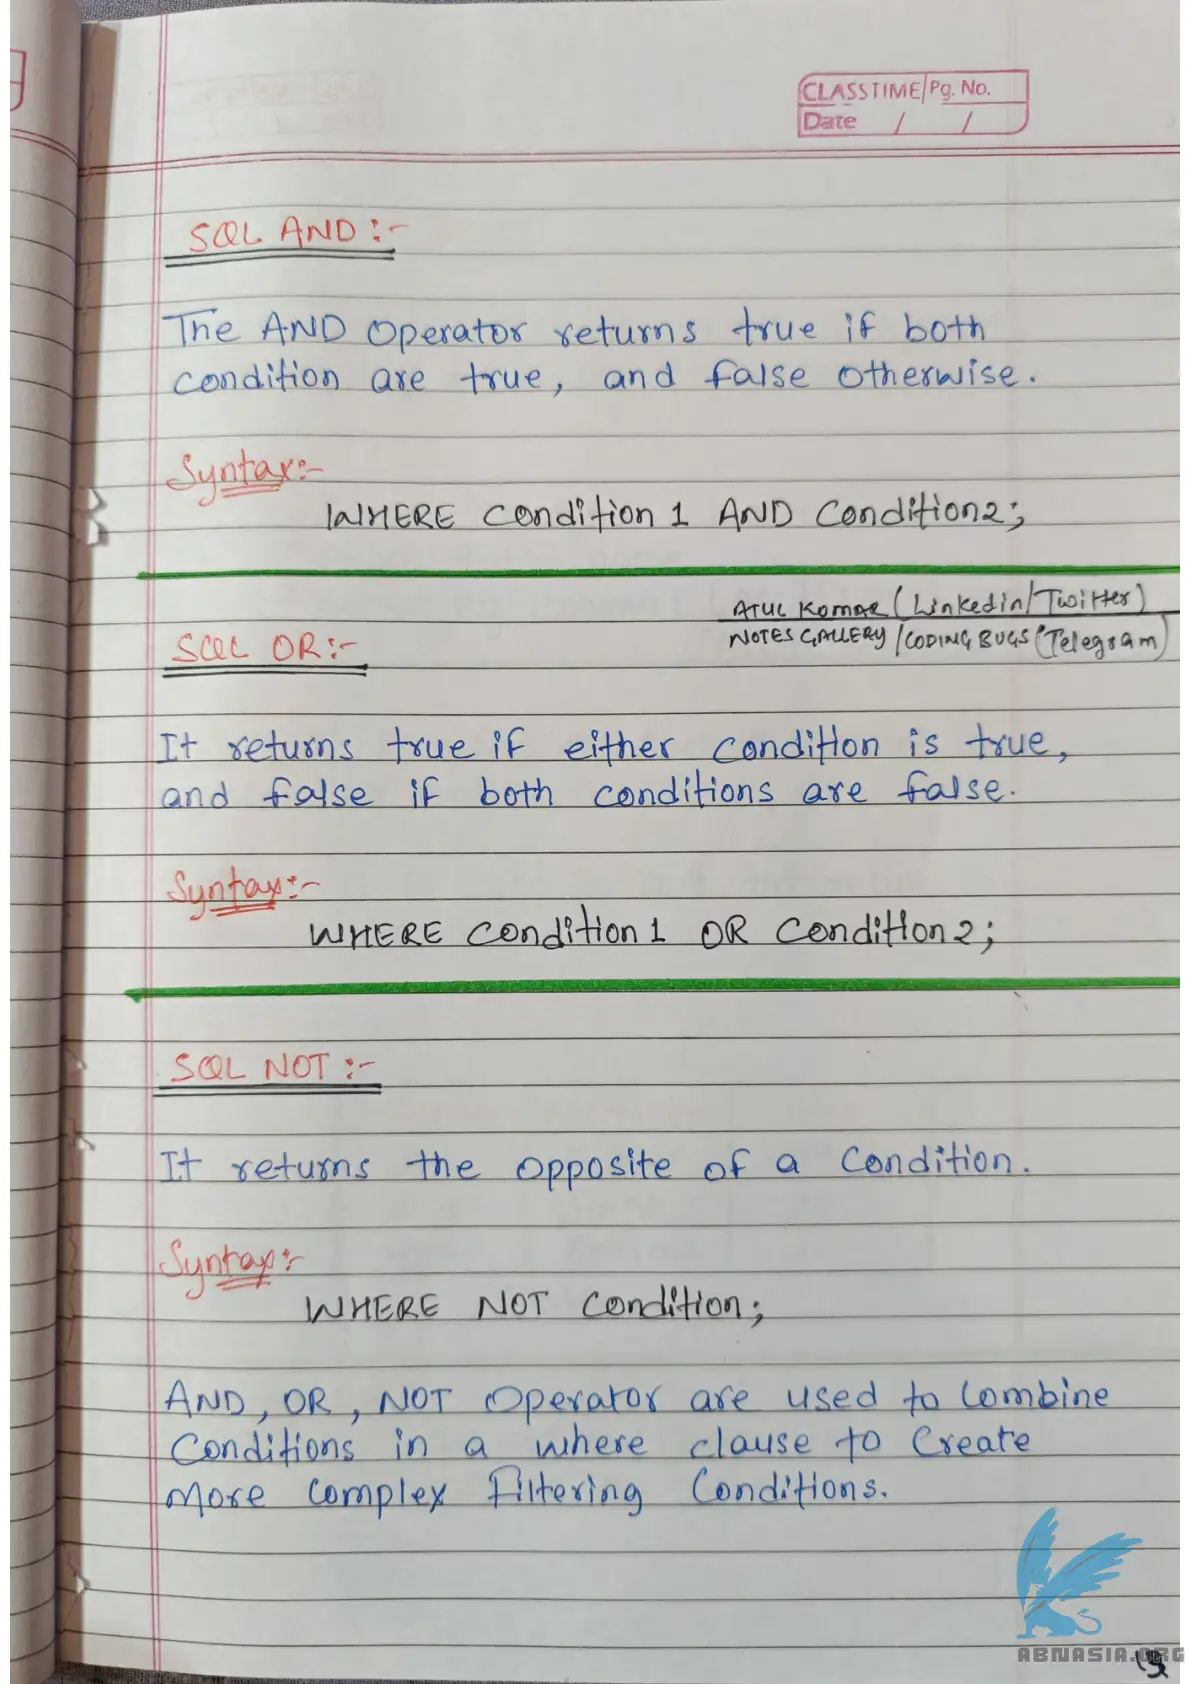 CLASSTIME Pg. No.
Date / /
SQL AND :-
The AND Operator returns true if both
condition are true, and false otherwise.
Syntax:-
WHERE Condition 1 AND Condition2;
ATUL KUMAR (Linkedin/Twitter)
NOTES GALLERY / CODING BUGS (Telegram)
SQL OR :-
It returns true if either condition is true,
and false if both conditions are false.
Syntax:-
WHERE Condition 1 OR Condition 2;
SQL NOT :-
It returns the opposite of a Condition.
Syntax:-
WHERE NOT Condition;
AND, OR, NOT Operator are used to Combine
Conditions in a where clause to Create
More Complex Filtering Conditions.
ABNASIA.ORG